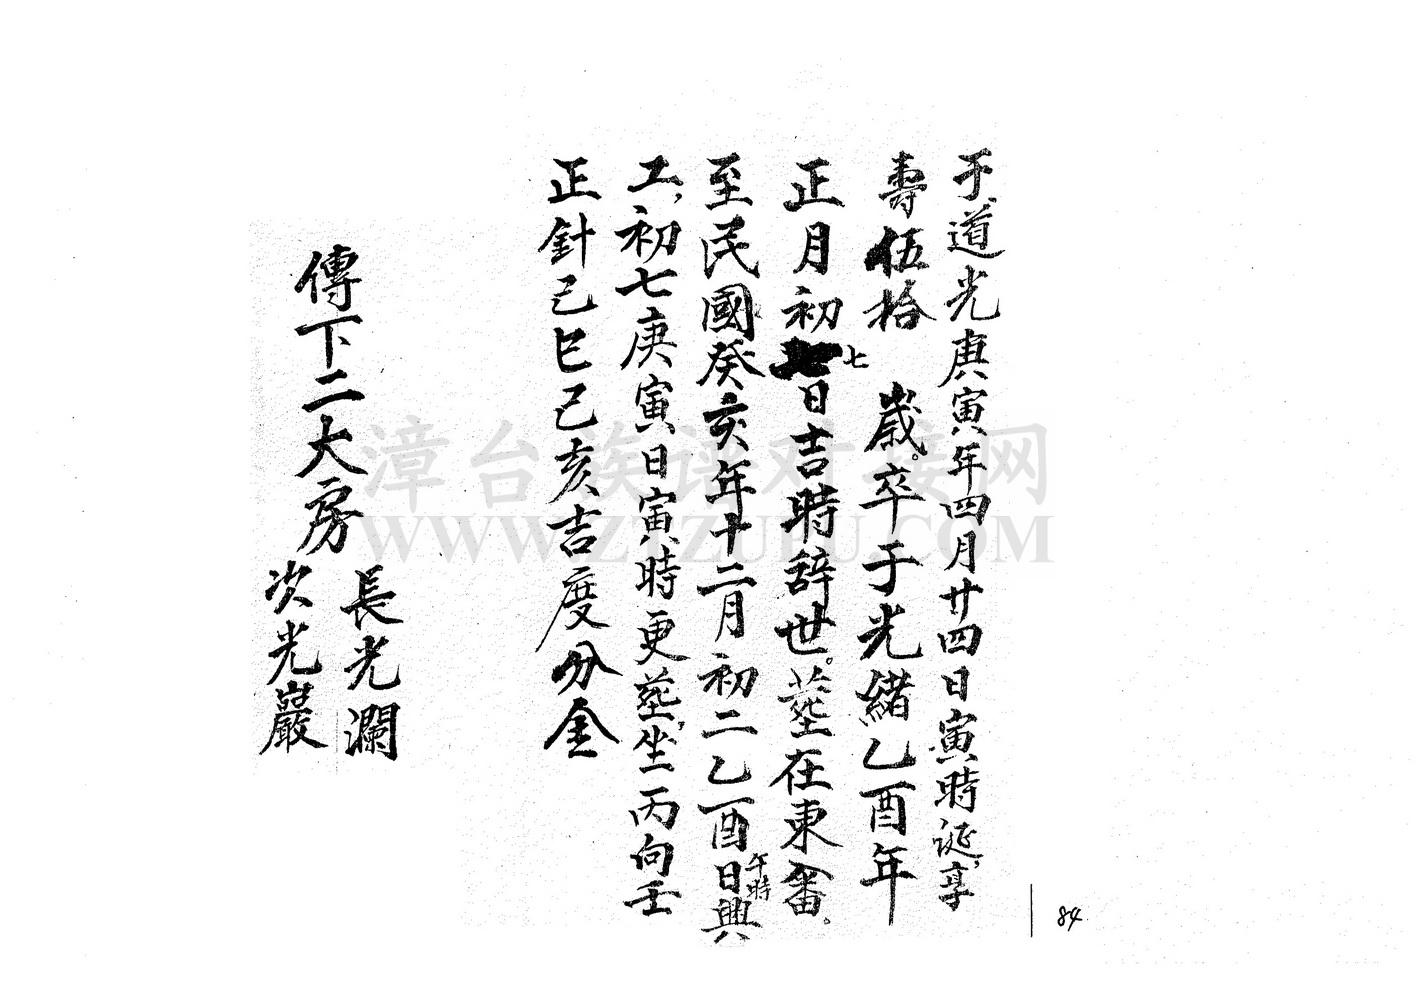 于道光庚寅年四月廿四日寅時誕,享
壽伍拾 歲。卒于光緒乙酉年
正月初七日吉時辭世。塟在東畬。
至民國癸亥年十二月初二乙酉日午時興
工,初七庚寅日寅時更塟,坐丙向壬
正針己巳己亥吉度分金
傳下二大房
長光瀾
次光巖
84
漳台族谱对接网
WWW.ZTZUPU.COM